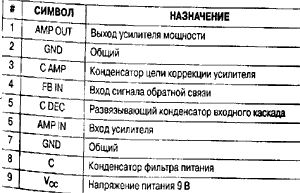 # СИМВОЛ НАЗНАЧЕНИЕ
1 AMP OUT Выход усилителя мощности
2 GND Общий
3 C AMP Конденсатор цепи коррекции усилителя
4 FB IN Вход сигнала обратной связи
5 C DEC Развязывающий конденсатор входного каскада
6 AMP IN Вход усилителя
7 GND Общий
8 C Конденсатор фильтра питания
9 Vcc Напряжение питания 9 В